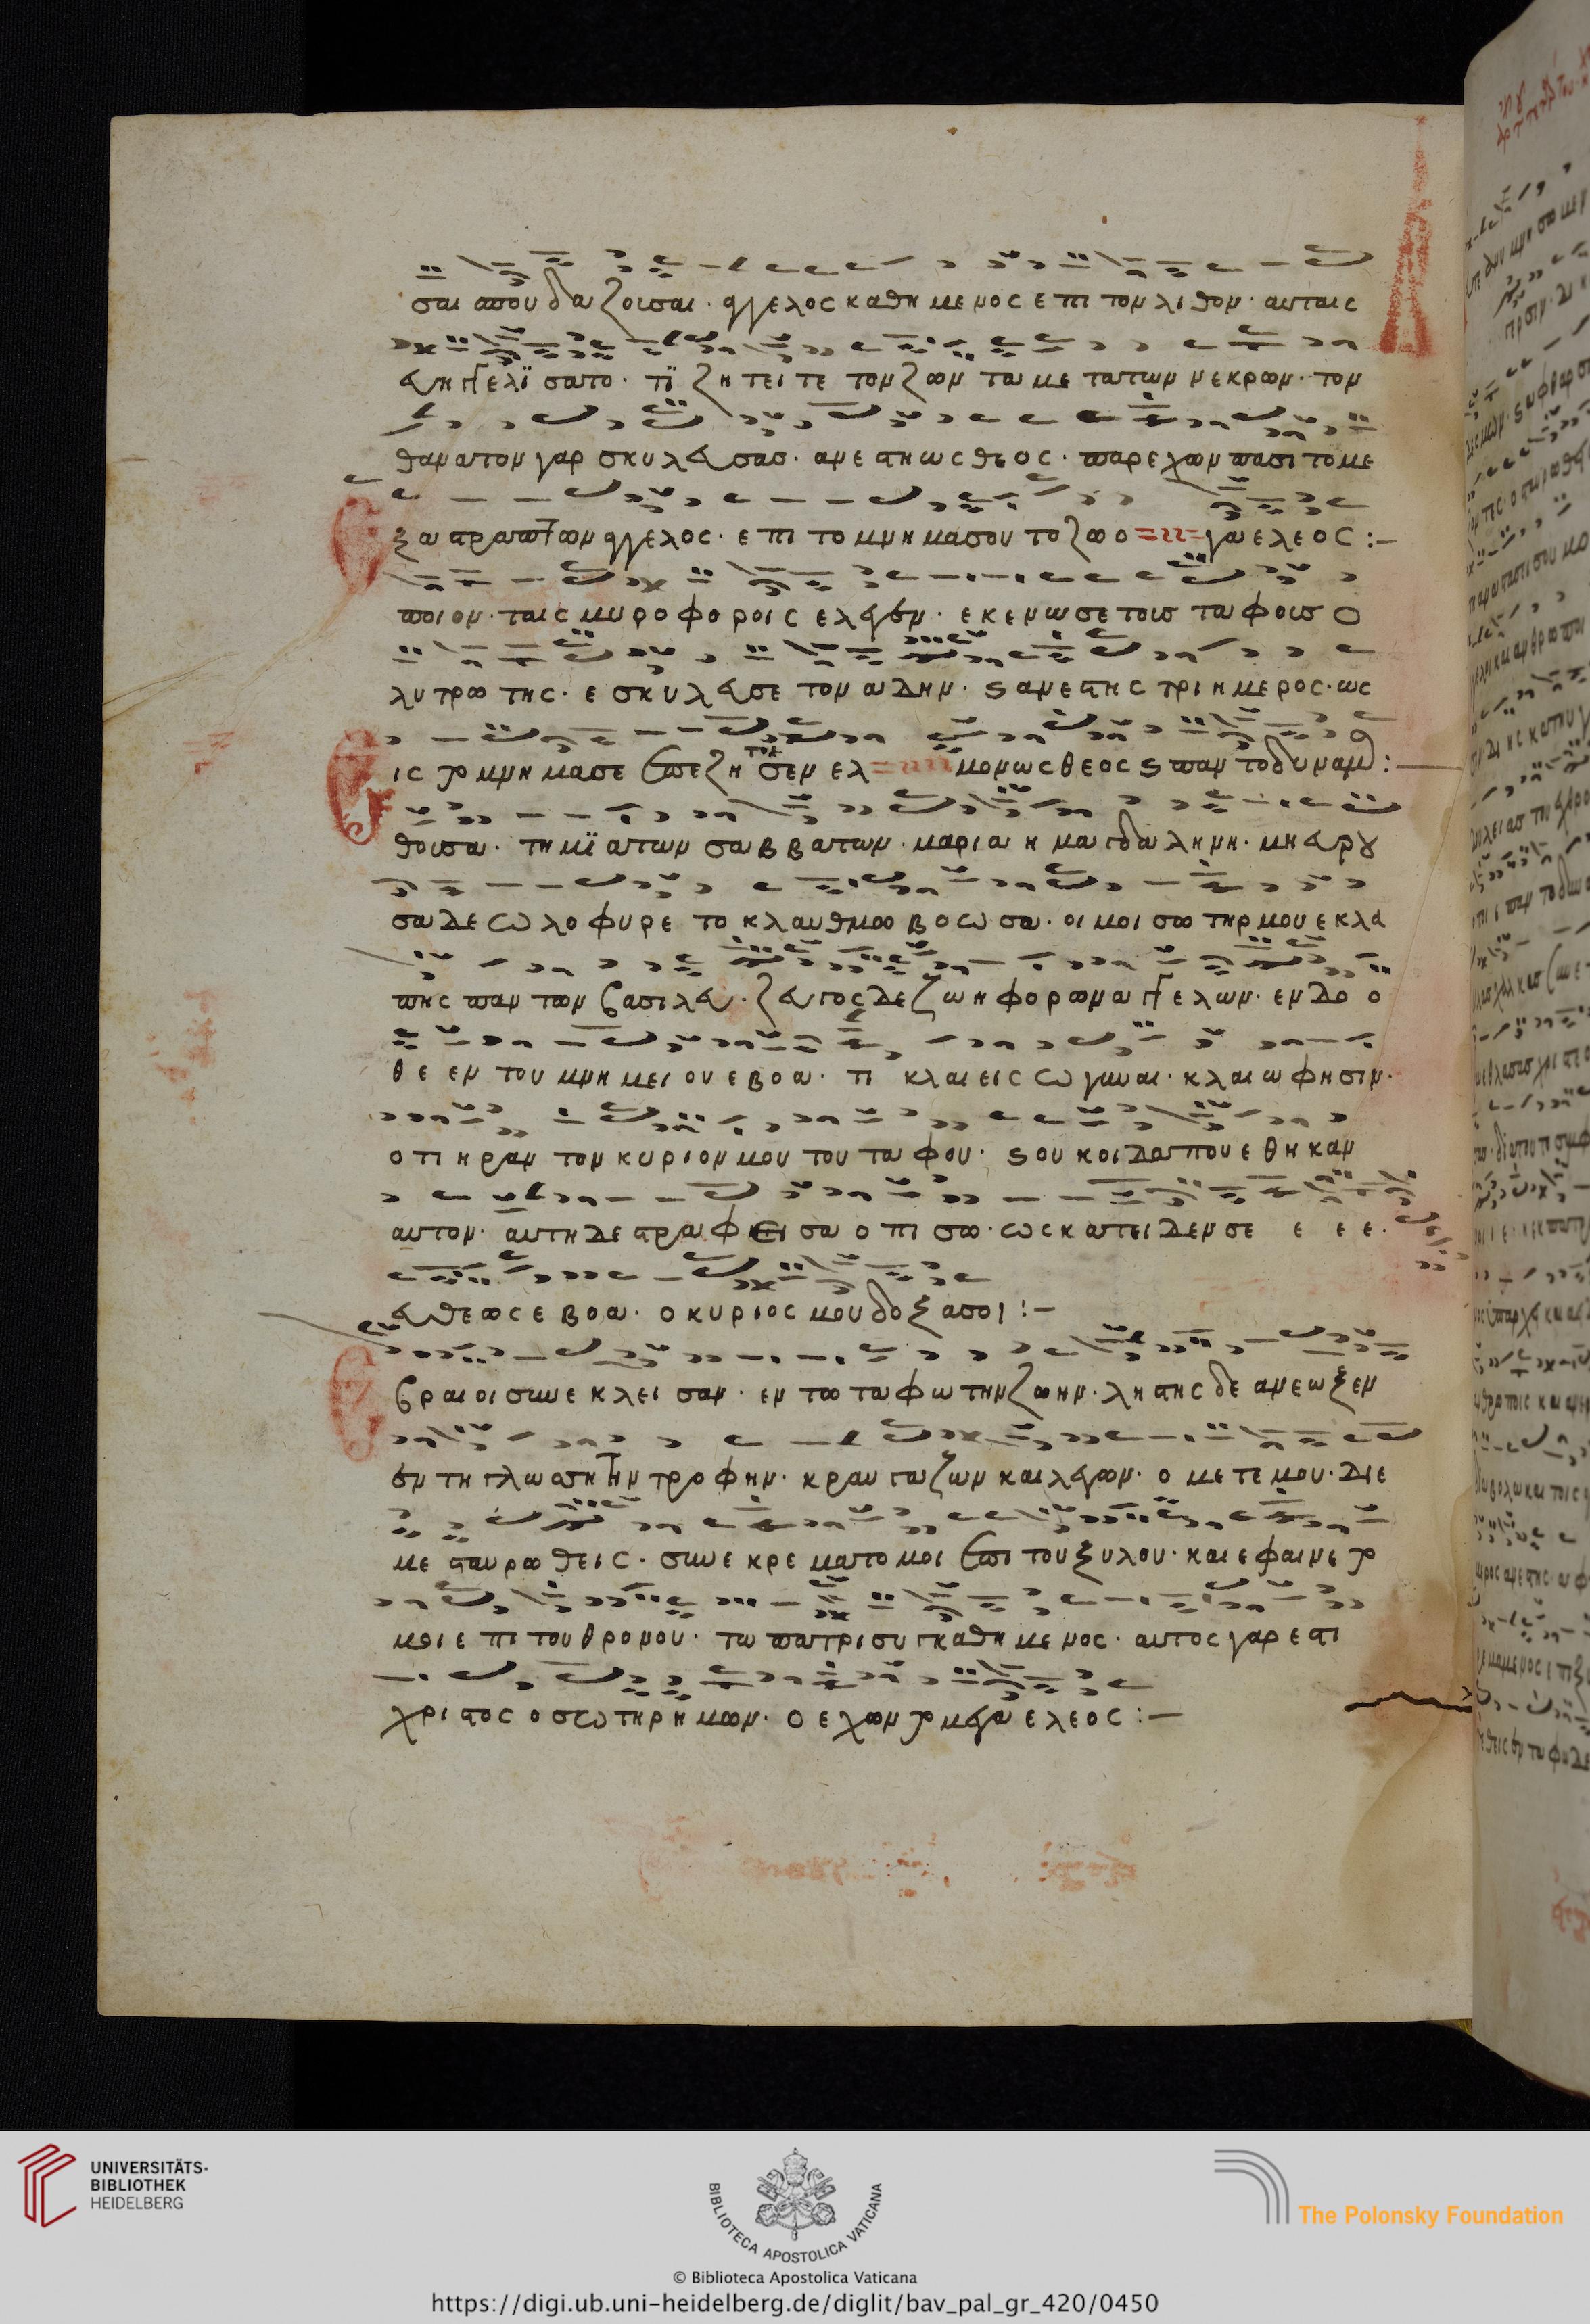 σαι σπουδαζουσαι· αγγελος καθημενος επι τον λιθον· αυταις
ευηγγελϊσατο· τϊ ζητειτε τον ζωντα μετα των νεκρων· τον
θανατον γαρ σκυλευσας· ανεστη ως θεος· παρεχων πασι το με
γα ελεος :–
ξαστραπτων αγγελος· επι το μνημα σου το ζωο
ποιον· ταις μυροφοροις ελεγεν· εκενωσε τους ταφους ο
λυτρωτης· εσκυλευσε τον αδην· ς ανεστης τριημερος· ως
μονως θεος ς παντοδυναμος :
ις το μνημα σε επεζητησεν ελ
θουσα· τη μϊα των σαββατων· μαρια η μαγδαληνη· μη ευρου
σα δε ωλοφυρε το κλαυθμω βοωσα· οιμοι σωτηρ μου εκλα
πης παντων βασιλευ· ζευγος δε ζωηφορων αγγελων· ενδο
θεεν του μνημειου εβοα· τι κλαιεις ω γυναι· κλαιω φησιν·
οτι ηραν τον κυριον μου του ταφου· ς ουκ οιδα που εθηκαν
αυτον· αυτη δε στραφεισα οπισω· ως κατειδεν σε ε ε ε·
ευθεως εβοα· ο κυριος μου δοξα σοι :–
βραιοι συνεκλεισαν· εν τω ταφω την ζωην· ληστης δε ανεωξεν
εν τη γλωσση την τρυφην· κραυγαζων και λεγων· ο μετ εμου· δι ε
με σταυρωθεις· συνεκρεματο μοι επι του ξυλου· και εφαινετο
μοι επι του θρονου· τω πατρι συγκαθημενος· αυτος γαρ εστι
χριστος ο σωτηρ ημων· ο εχων το μεγα ελεος :–
UNIVERSITÄTS-
BIBLIOTHEK
HEIDELBERG
BIBLIOTECA APOSTOLICA VATICANA
The Polonsky Foundation
© Biblioteca Apostolica Vaticana
https://digi.ub.uni-heidelberg.de/diglit/bav_pal_gr_420/0450